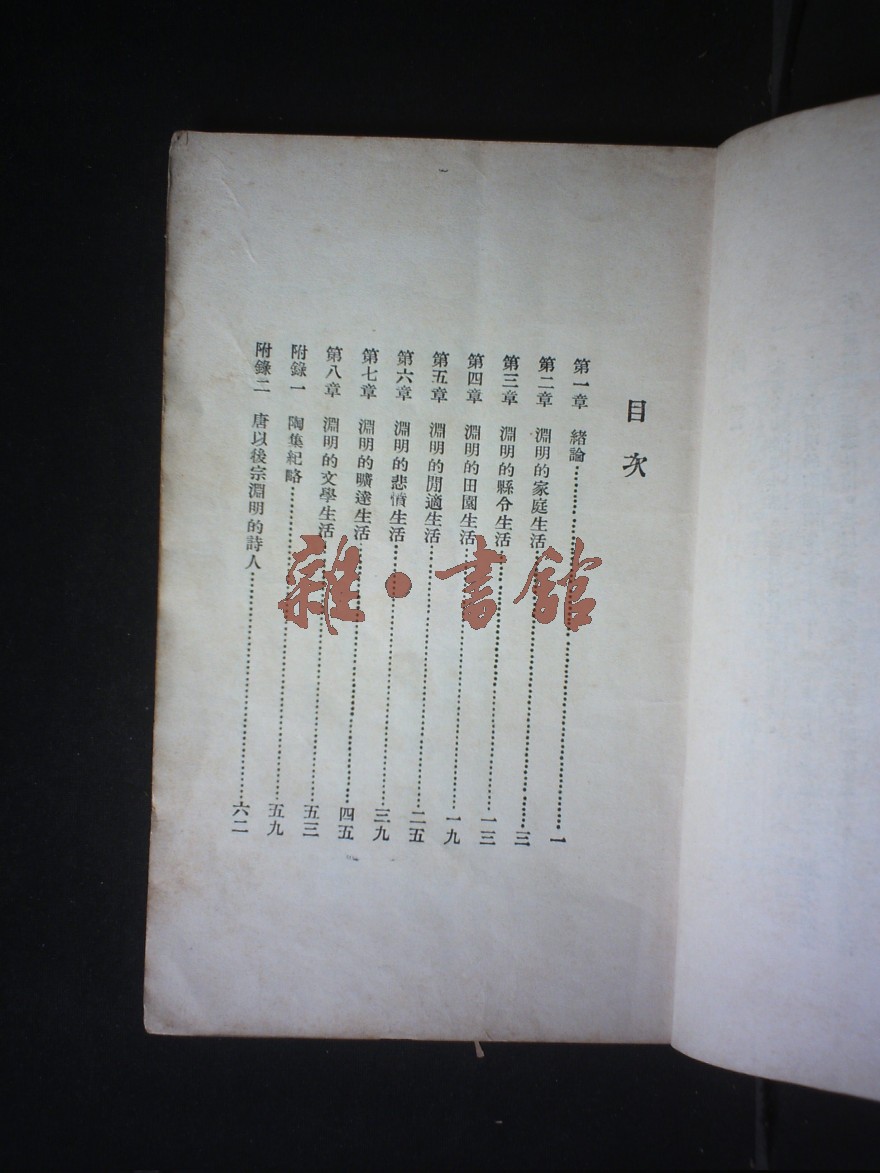 目次
第一章 緒論……一
第二章 淵明的家庭生活……三
第三章 淵明的縣令生活……一三
第四章 淵明的田園生活……一九
第五章 淵明的閒適生活……二五
第六章 淵明的悲憤生活……三九
第七章 淵明的曠達生活……四五
第八章 淵明的文學生活……五三
附錄一 陶集紀略……五九
附錄二 唐以後宗淵明的詩人……六二
雜·書館